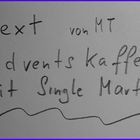 ext von MT
dvents Kaffe
it Single Mart